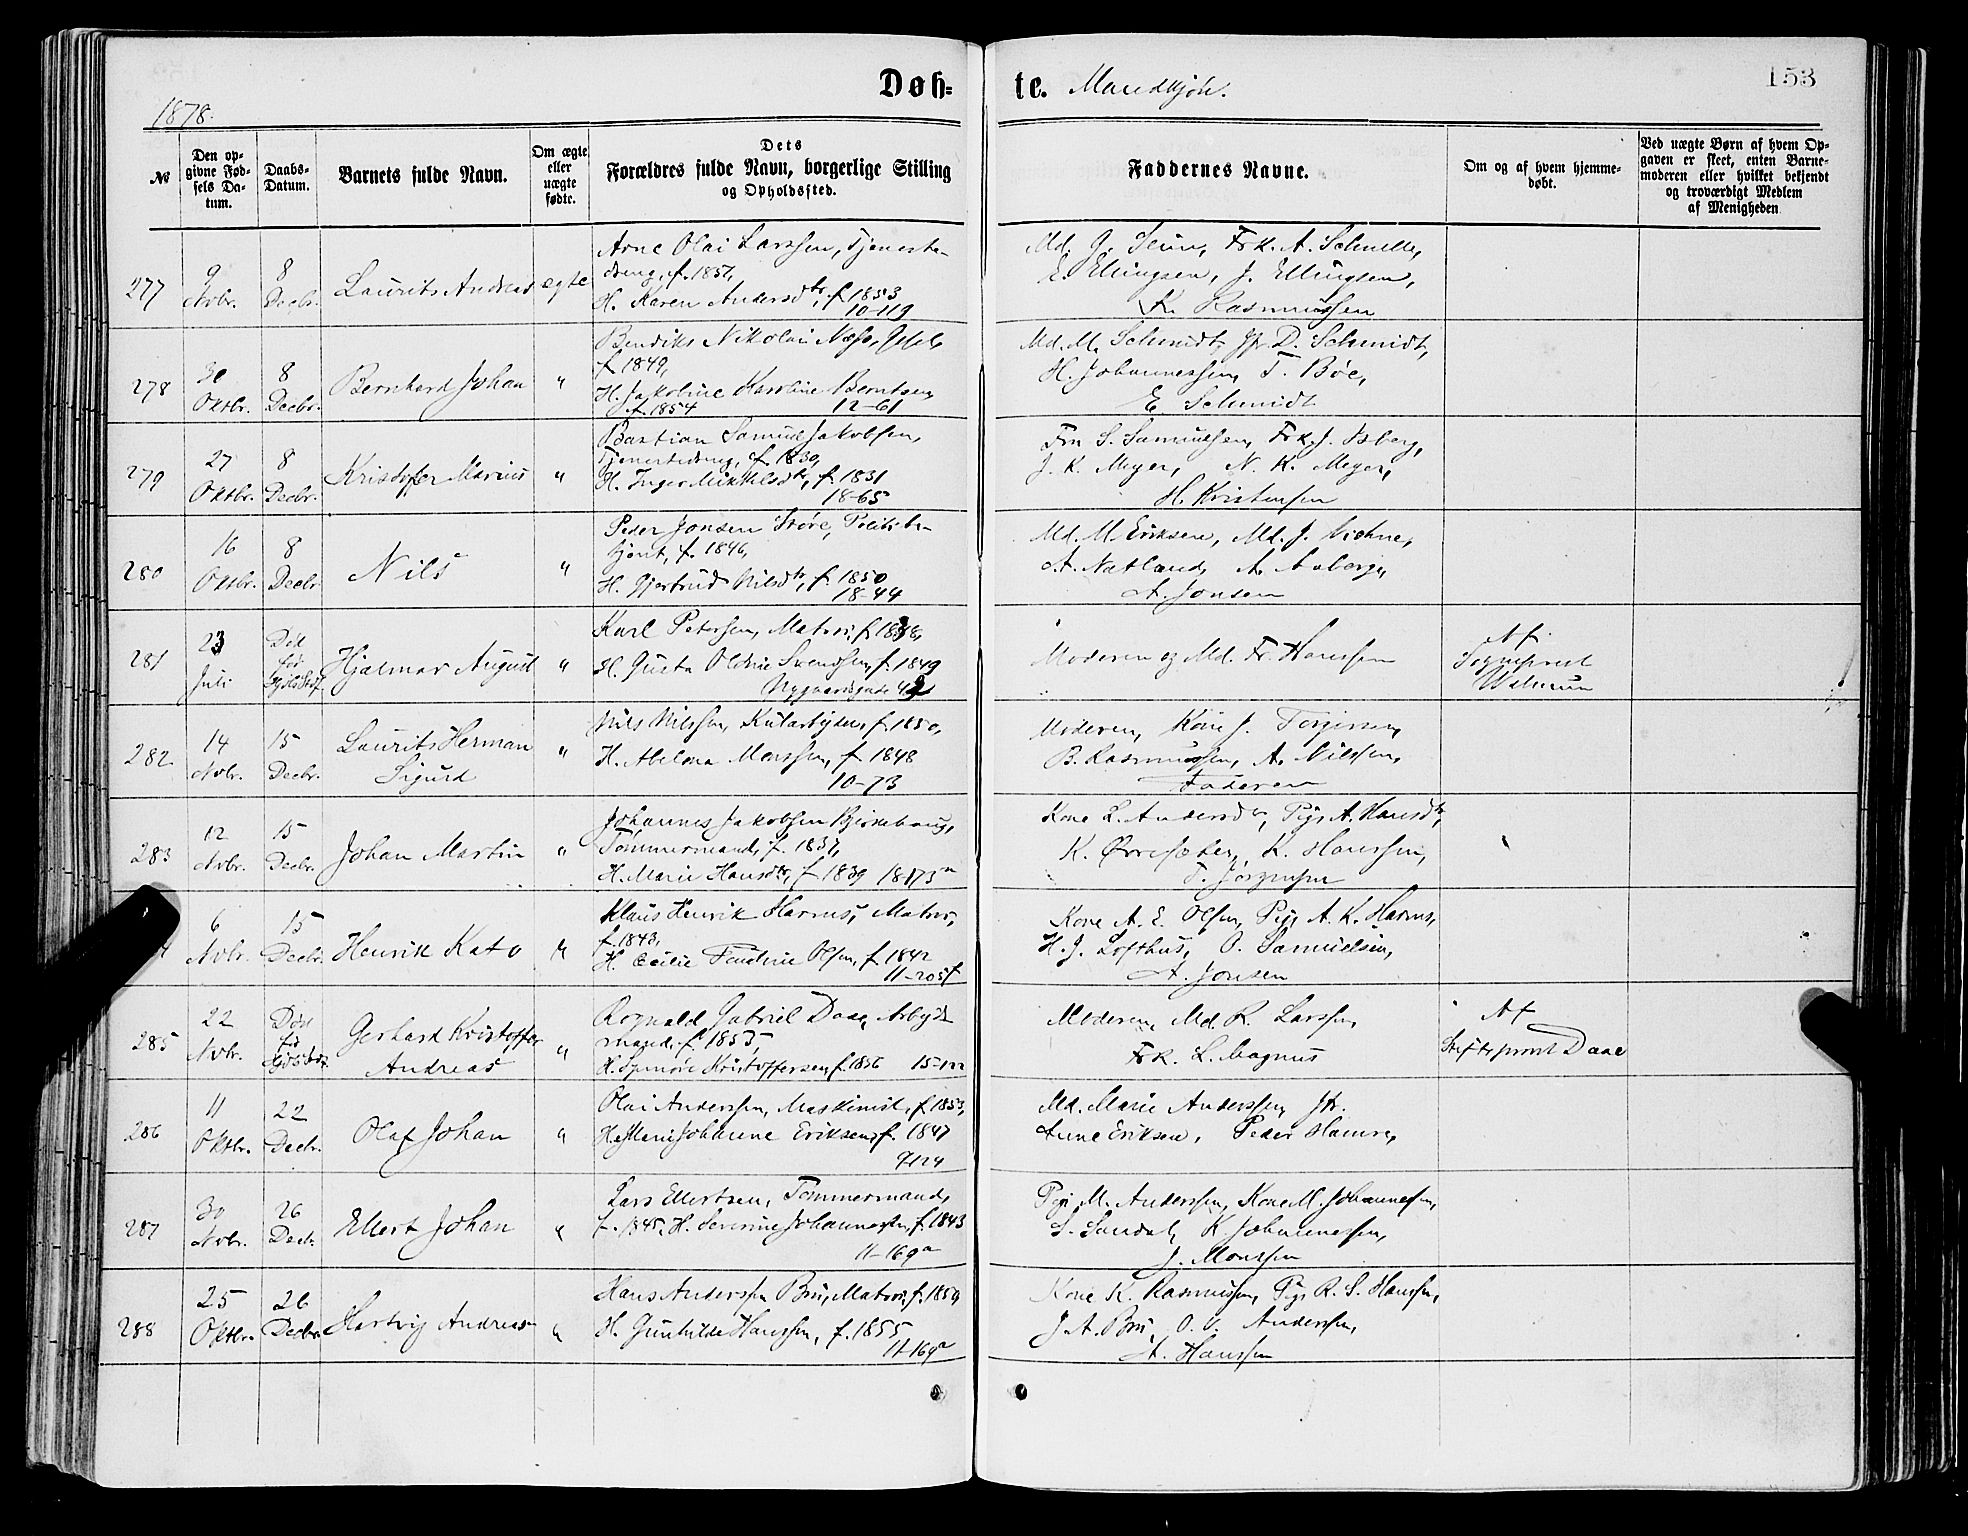 Døb-
te. Mandkjøn.
153
1878.
№
Den op-
givne Fød-
sels Da-
tum.
Daabs-
Datum.
Barnets fulde Navn.
Om ægte
eller
uægte
fødte.
Dets
Forældres fulde Navn, borgerlige Stilling
og Opholdssted.
Faddernes Navne.
Om og af hvem hjemme-
døbt.
Ved uægte Børn af hvem Op-
gaven er skeet, enten Barne-
moderen eller hvilket bekjendt
og troværdigt Medlem
af Menigheden
277
9
Novbr.
8
Decbr.
Laurits Andreas
ægte
Arne Olai Larssen, Tjeneste-
dreng, f. 1857,
H. Karen Andersdtr, f. 1853
10-119
Md. J. Frk. A.
E. Ellingsen, J. Ellingsen,
K. Rasmussen
278
30
Oktbr.
8
Decbr.
Bernhard Johan
"
Bendiks Nikolai
f. 1849,
H. Jakobine Karoline Berntsen,
f. 1854 12-61
Md. M. Schmidt, D. Schmidt,
H. Johannessen, T. Bøe,
E. Schmidt
279
27
Oktbr.
8
Decbr.
Kristofer Marius
"
Bastian Samuel Jakobsen,
Tjenestedreng, f. 1830,
H. Inger Mikkelsdtr, f. 1831
18-65
Fru S. Samuelsen, Frk. J. Isberg,
J. K. Meyer, N. K. Meyer,
H. Kristensen
280
16
Oktbr.
8
Decbr.
Nils
"
Peder Jonsen Støre, Politibe-
tjent, f. 1846,
H. Gjertrud Nilsdtr, f. 1850
18-44
Md. M. Eriksen, Md. J.
A. Natland, A. Aaberge,
A. Jonsen
281
23
Juli
Død
før
Hjalmar August
"
Karl Petersen, Matros, f.
H. Gusta Oldine Svendsen, f. 1849
Nygaardsgade
Moderen og Md. Fr. Hanssen
Af
Sogneprest
282
14
Novbr.
15
Decbr.
Laurits Herman
Sigurd
"
Nils Nilssen, f. 1850,
H. Abelona Monssen, f. 1848
10-73
Moderen, Kone J.
B. Rasmussen, A. Nilssen,
Faderen
283
12
Novbr.
15
Decbr.
Johan Martin
"
Johannes Jakobsen
Tømmermand, f. 1837,
H. Marie Hansdtr, f. 1839 18-173a
Kone L. Andersdtr, Pige A. Hansdtr,
K. K. Hanssen,
T. Jørgensen
6
Novbr.
15
Decbr.
Henrik Kato
"
Klaus Henrik Harms, Matros,
f. 1843,
H. Cecilie Olsen, f. 1842
Kone A. E. Olsen, Pige A. K. Harms,
H. J. Lofthus, O. Samuelsen,
A. Jonsen
285
22
Novbr.
Død
før
Gerhard Kristoffer
Andreas
"
Rognald Gabriel Daae, Arbejds-
mand, f. 1855
H. Kristoffersen, f. 1856
Moderen, Md. R. Larssen,
Frk. L. Magnus
Af
Stiftsprost Daae
286
11
Oktbr.
22
Decbr.
Olaf Johan
"
Olai Anderssen, Maskinist, f. 1853,
H. Marie Johanne Eriksen, f. 1847
Md. Marie Anderssen,
Anne Eriksen, Peder Hamre,
287
30
Novbr.
26
Decbr.
Ellert Johan
"
Lars Ellertsen, Tømmermand,
f. 1845, H. Severine Johannessen, f. 1843
11-169a
Pige M. Anderssen, Kone M. Johannessen,
S. Sandal, K. Johannessen,
J. Monssen
288
25
Oktbr.
26
Decbr.
Hartvig Andreas
"
Hans Anderssen Bru, Matros, f. 1850,
H. Gunhilde Hanssen, f. 1855
11-169a
Kone K. Rasmussen, Pige R. S. Hanssen,
J. A. Bru, O. Anderssen,
A. Hanssen